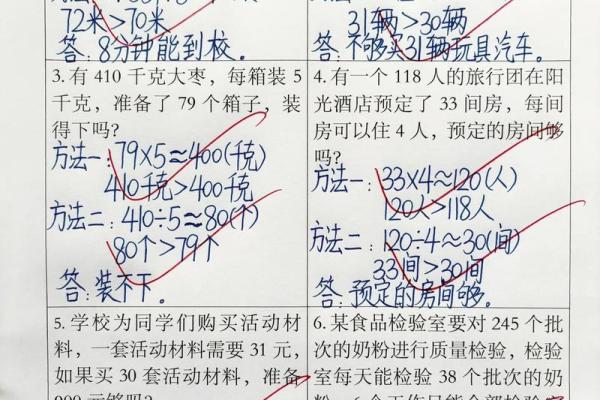 72米>70米
答：8分钟能到校。
31辆>30辆
答：不够买31辆玩具汽车。
3. 有 410 千克大枣，每箱装 5
千克，准备了 79 个箱子，装
得下吗？
方法一：79×5≈400(千克)
410千克>400千克
方法二：410÷5≈80(个)
80个>79个
答：装不下。
4. 有一个 118 人的旅行团在阳
光酒店预定了 33 间房，每间
房可以住 4 人，预定的房间够
吗？
方法一：33×4≈120(人)
120人>118人
方法二：120÷4≈30(间)
33间>30间
答：预定的房间够。
5. 学校为同学们购买活动材
料，一套活动材料需要 31 元，
如果买 30 套活动材料，准备
900 元够吗？
6. 某食品检验室要对 245 个批
次的奶粉进行质量检验，检验
室每天能检验 38 个批次的奶